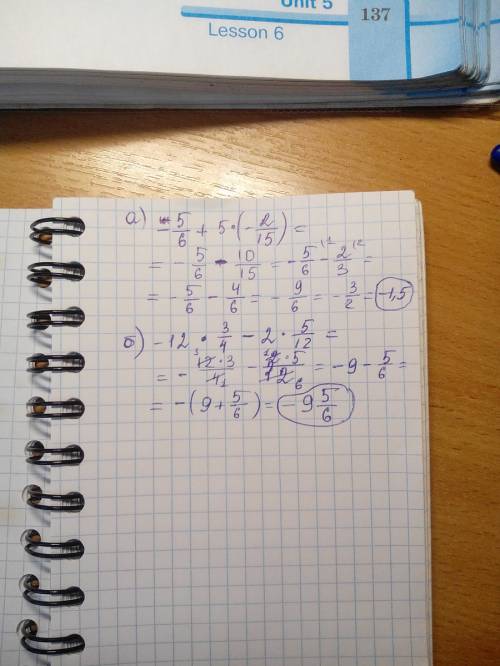 Unit 5
137
Lesson 6
а) -5/6 + 5·(-2/15) =
= -5/6 - 10/15 = -5/6 - 2/3 =
= -5/6 - 4/6 = -9/6 = -3/2 = -1,5
б) -12·3/4 - 2·5/12 =
= -12·3/4 - 2·5/12 = -9 - 5/6 =
= -(9 + 5/6) = -9 5/6